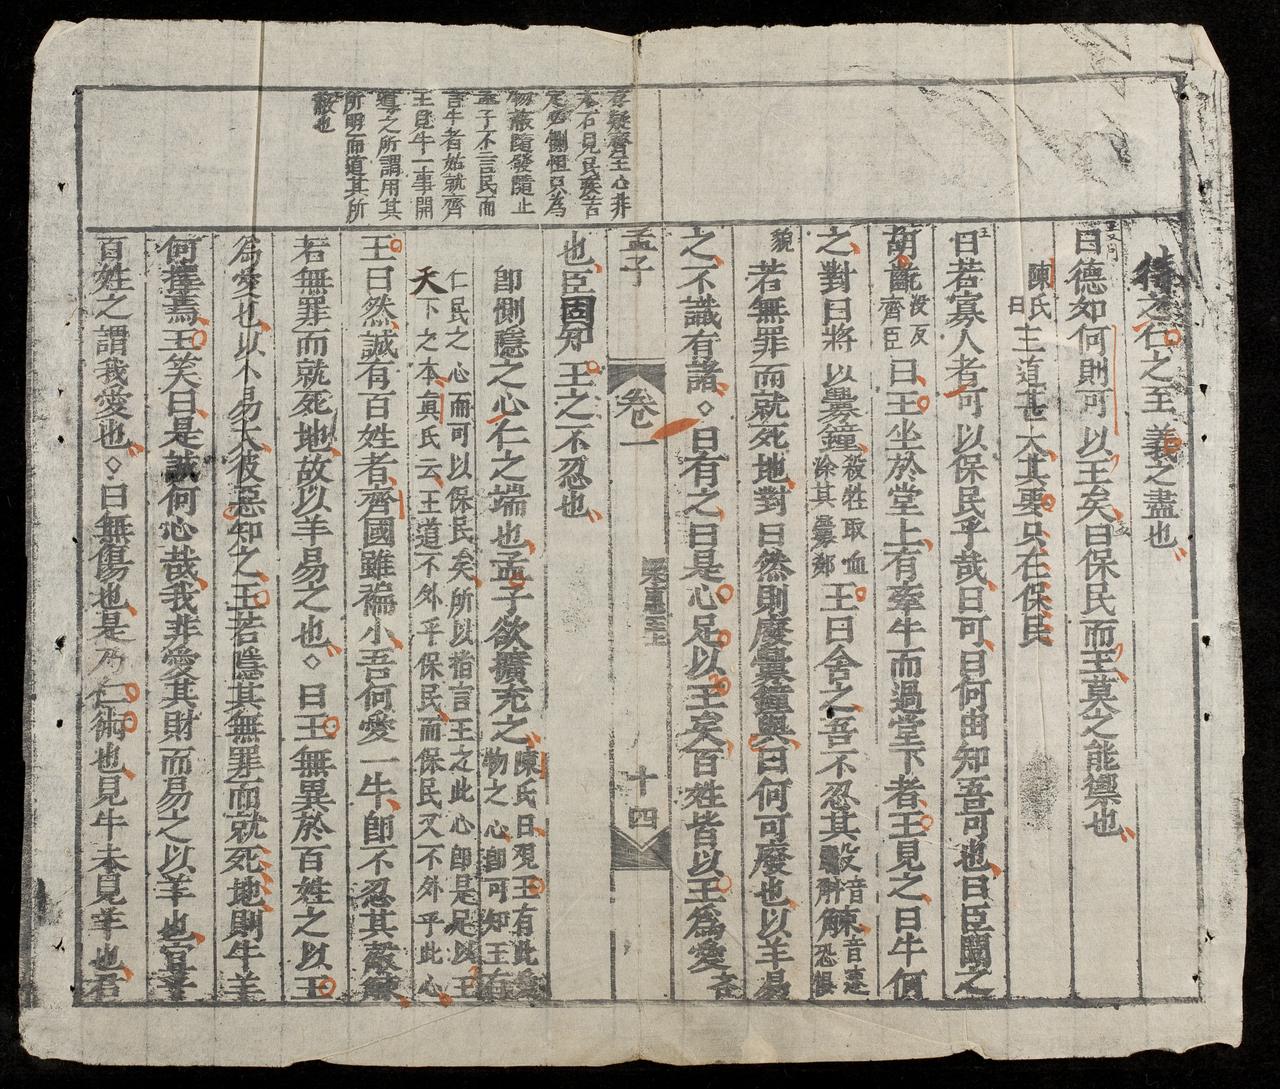 待之仁之至義之盡也
曰德如何則可以王矣曰保民而王莫之能禦也
陳氏曰王道甚大其要只在保民
曰若寡人者可以保民乎哉曰可曰何由知吾可也曰臣聞之
胡齕没反齊臣曰王坐於堂上有牽牛而過堂下者王見之曰牛何
之對曰將以釁鐘殺牲取血涂其釁郤王曰舍之吾不忍其觳音斛觫音速恐懼
貌
若無罪而就死地對曰然則廢釁鐘與曰何可廢也以羊易
之不識有諸曰有之曰是心足以王矣百姓皆以王為愛
孟子 卷一 梁惠王上 十四
存疑齊王心非
本石見民疾苦
惻怛只為
物蔽隨發隨止
孟子不言民而
言牛者始就齊
王見牛一事開
導之所謂用其
所明而道其所
蔽也
也臣固知王之不忍也
即惻隱之心仁之端也孟子欲擴充之陳氏曰觀王有此愛物之心即可知王有
仁民之心而可以保民矣所以指言王之此心即是足以王
天下之本真氏云王道不外乎保民而保民又不外乎此心
王曰然誠有百姓者齊國雖褊小吾何愛一牛即不忍其觳觫
若無罪而就死地故以羊易之也曰王無異於百姓之以王
為愛也以小易大彼惡知之王若隱其無罪而就死地則牛羊
何擇焉王笑曰是誠何心哉我非愛其財而易之以羊也宜乎
百姓之謂我愛也曰無傷也是乃仁術也見牛未見羊也君